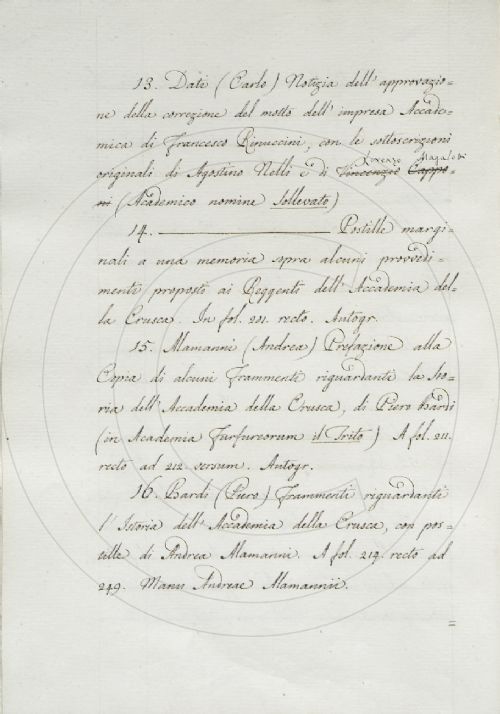 13. Dati (Carlo) Notizia dell' approvazio=
ne della correzione del motto dell' impresa Accade=
mica di Francesco Rinuccini, con le sottoscrizioni
originali di Agostino Nelli e di Vincenzio Cappo=
Lorenzo Magalotti
ni (Academico nomine Sollevato)
14. ——— Postille margi=
nali a una memoria spra alcuni provvedi=
menti proposti ai Reggenti dell' Accademia del=
la Crusca. In fol. 221. recto. Autogr.
15. Alamanni (Andrea) Prefazione alla
Copia di alcuni Frammenti riguardanti la Sto=
ria dell' Accademia della Crusca, di Piero Bardi
(in Academia Furfureorum il Trito) A fol. 211.
recto ad 212 versum. Autogr.
16. Bardi (Piero) Frammenti riguardanti
l' Istoria dell' Accademia della Crusca, con pos=
tille di Andrea Alamanni. A fol. 214. recto ad
249. Manus Andreae Alamannii.
=